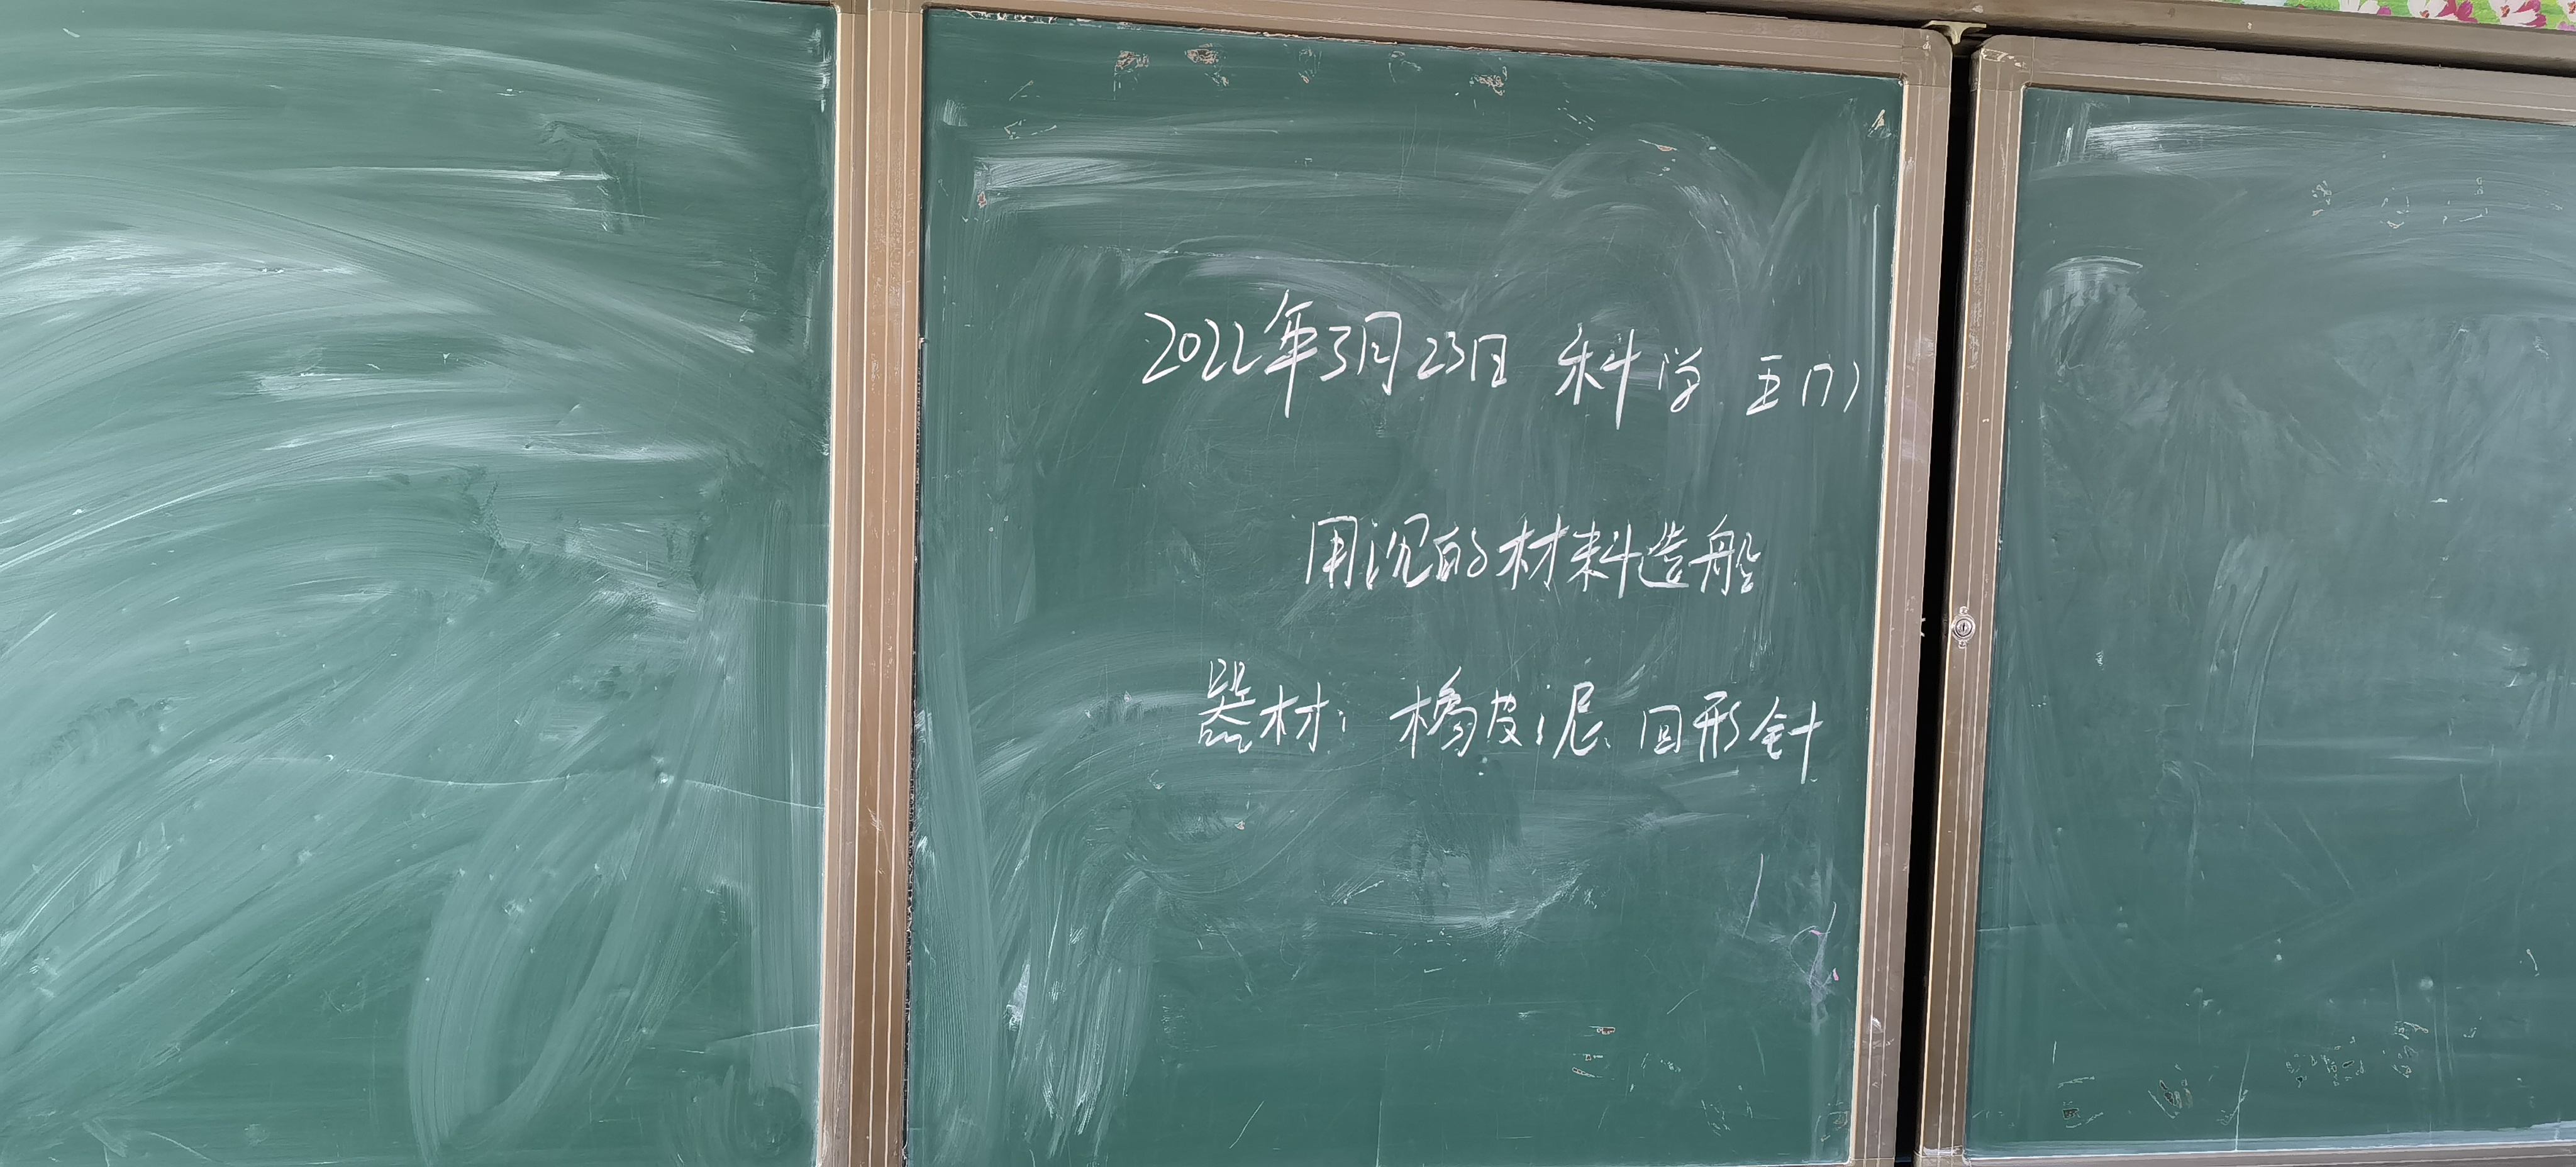 2022年3月23日 科学 五(7)
用沉的材料造船
器材：橡皮泥、回形针